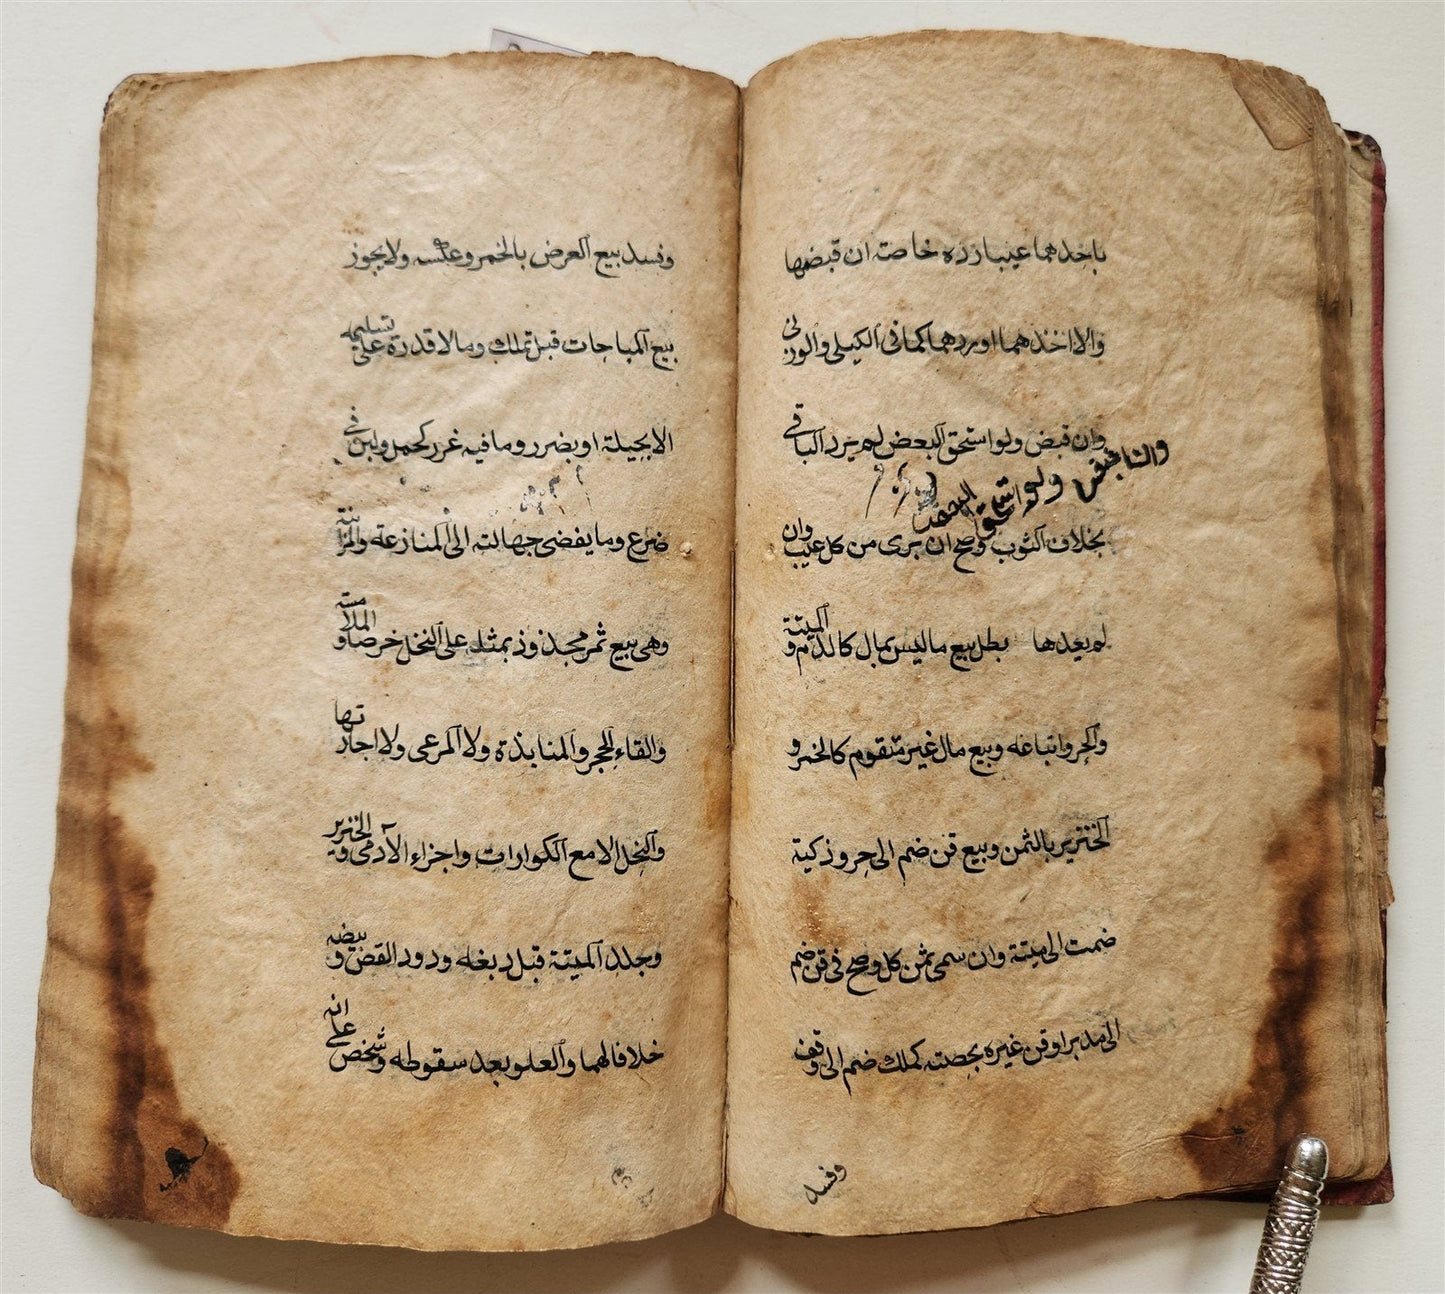 باحدهما عيبا رده خاصة ان قبضها
والا اخذهما او ردهما كما فى الكيلى والوزنى
وان قبض ولو استحق البعض لم يرد الباقى
ولو استحق البعض
بخلاف الثوب وصح ان برى من كل عيب وان
لم يعدها بطل بيع ما ليس بمال كالدم والميتة
والحر واتباعه وبيع مال غير متقوم كالخمر و
الخنزير بالثمن وبيع قن ضم الى حر وذكية
ضمت الى ميتة وان سمى ثمن كل وصح فى قن ضم
الى مدبر او قن غيره بحصته كملك ضم الى وقف
وفسد
وفسد بيع العرض بالخمر وعكسه ولا يجوز
بيع المباحات قبل تملك وما لا قدرة على تسليمه
الا بحيلة او بضرر وما فيه غرر كحمل ولبن فى
ضرع وما يفضى جهالته الى المنازعة والمزابنة
وهى بيع ثمر مجذوذ بمثله على النخل خرصا والملامسة
والقاء الحجر والمنابذة ولا المرعى ولا اجارتها
والنحل الا مع الكوارات واجزاء الآدمى والخنزير
وجلد الميتة قبل دبغه ودود القز وبيضه
خلافا لهما والعلو بعد سقوطه وشخص على انه